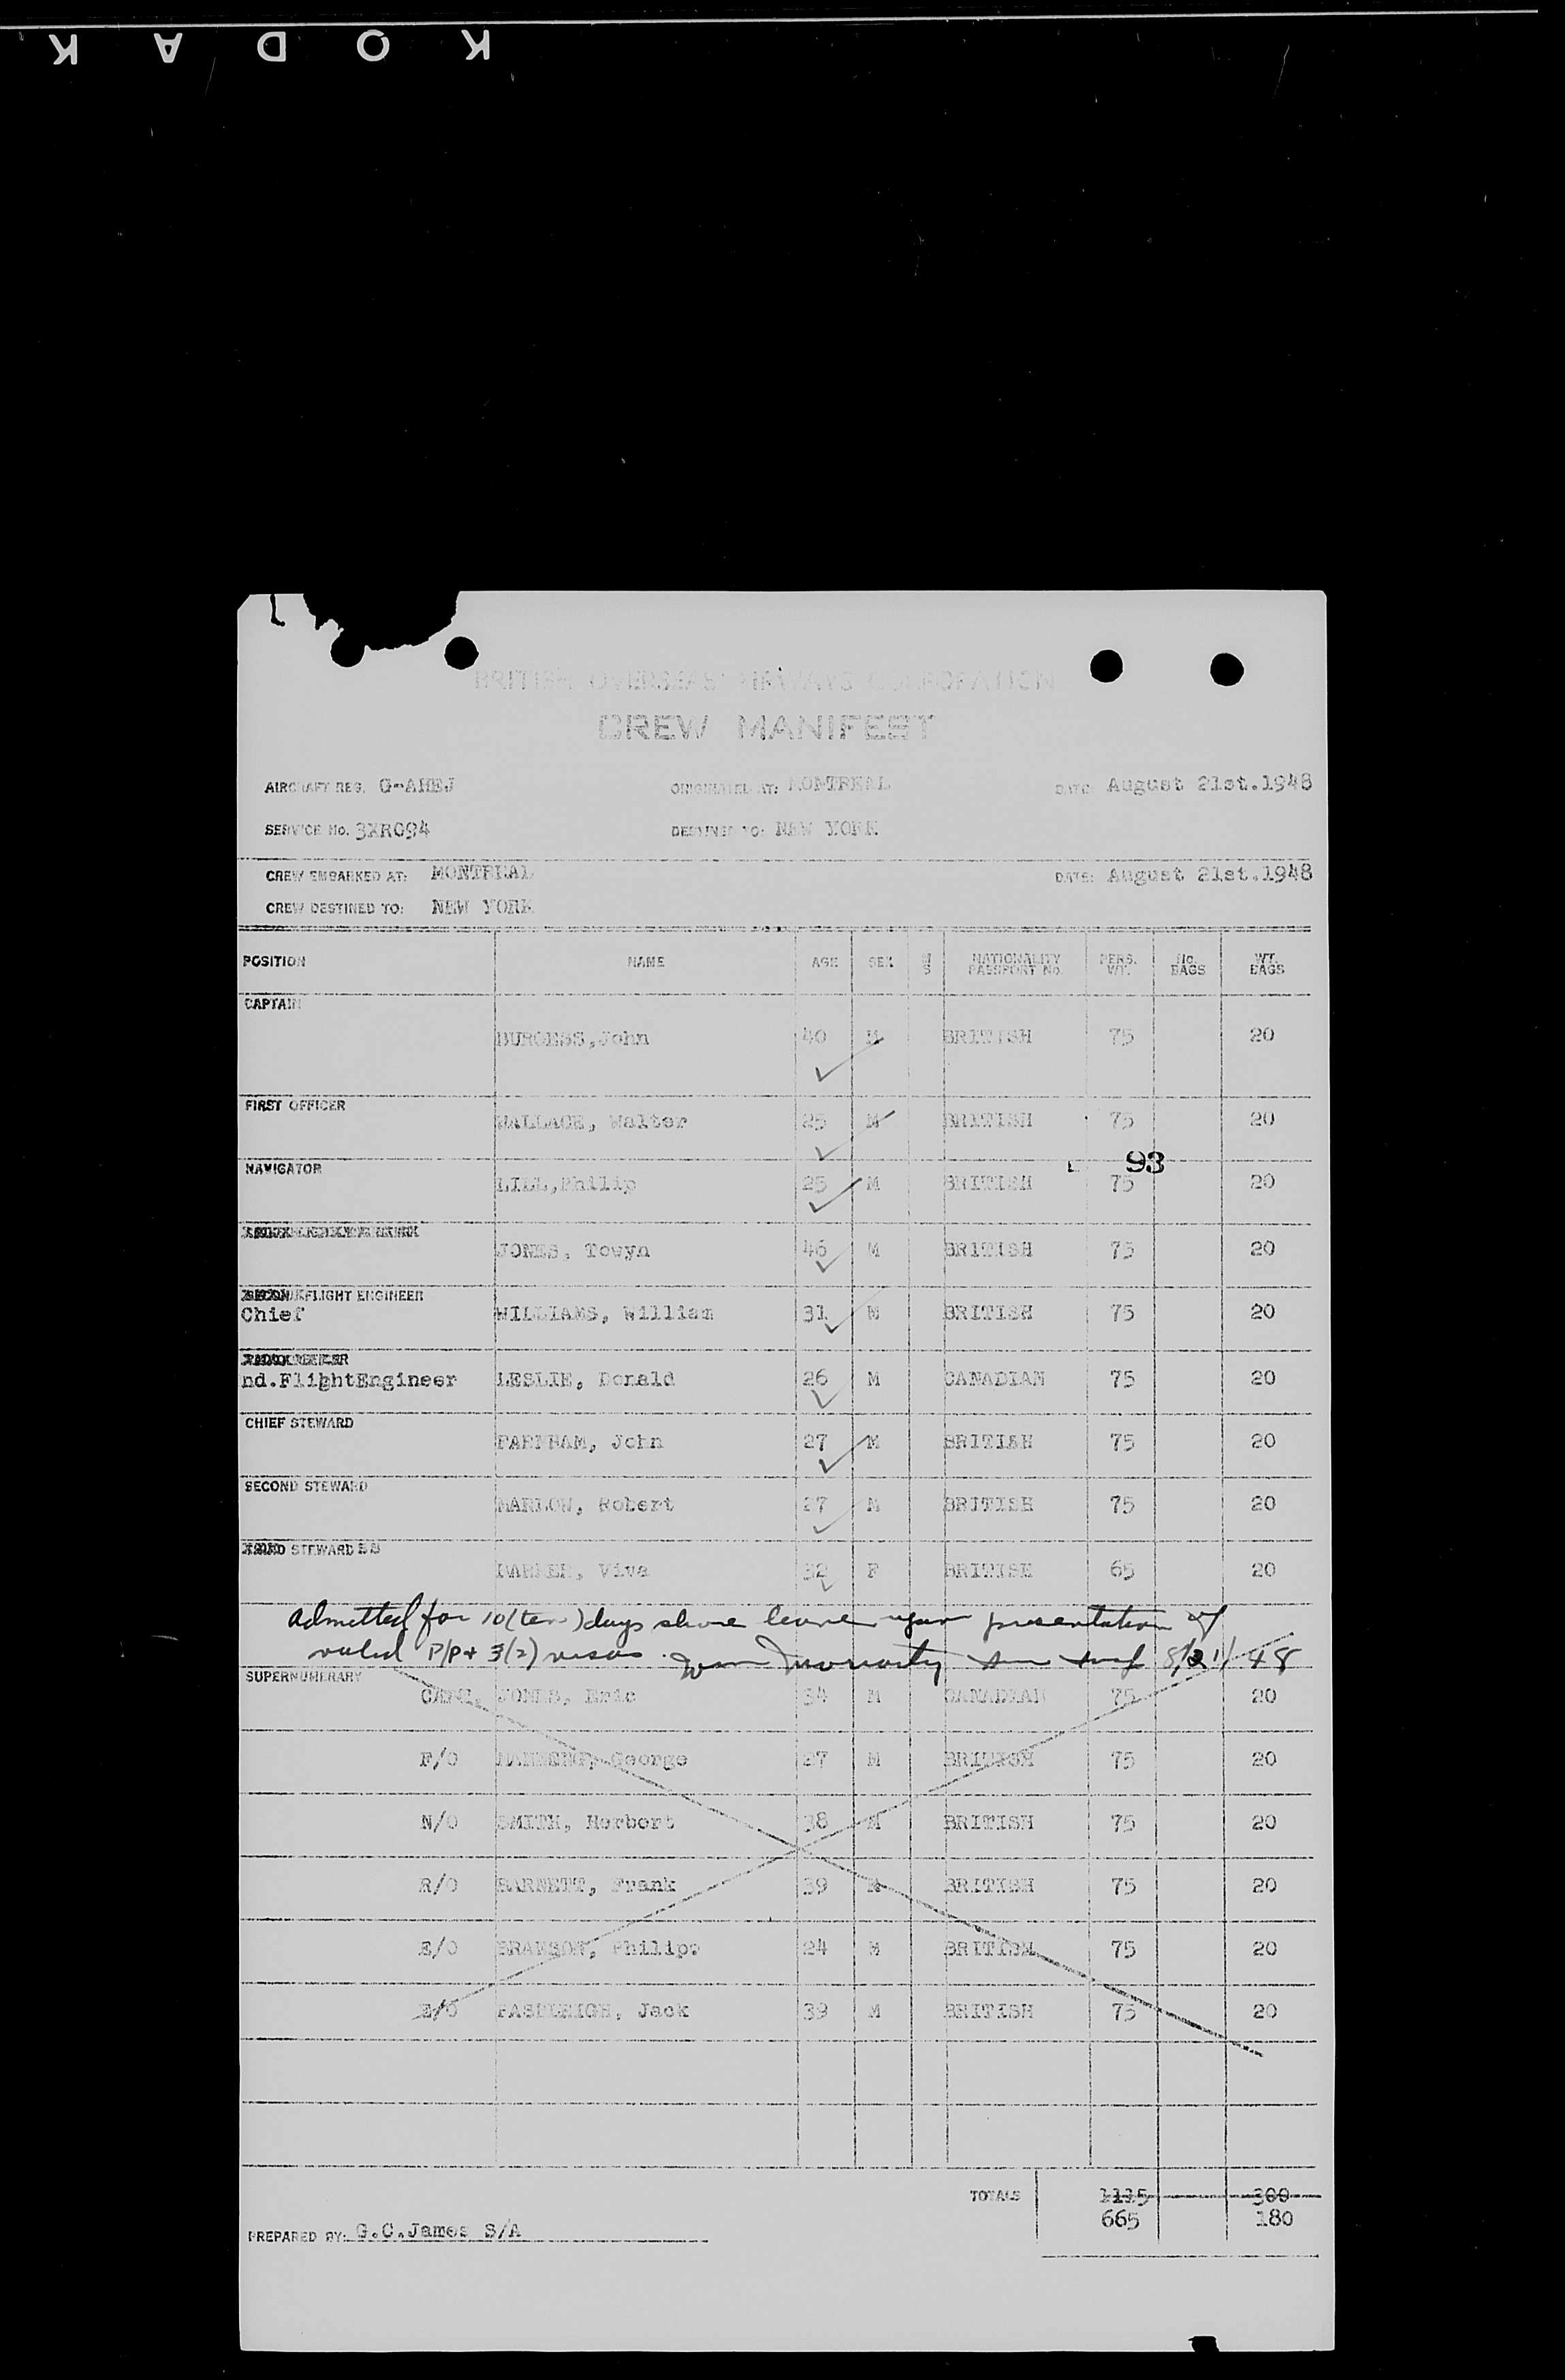 KODAK
BRITISH OVERSEAS AIRWAYS CORPORATION
CREW MANIFEST
AIRCRAFT REG. G-AHEJ ORIGINATED AT: MONTREAL DATE: August 21st.1948
SERVICE No. 3XR094 DESTINED TO: NEW YORK
CREW EMBARKED AT: MONTREAL DATE: August 21st.1948
CREW DESTINED TO: NEW YORK
POSITION NAME AGE SEX M S NATIONALITY PASSPORT No. PERS. WT. No. BAGS WT. BAGS
CAPTAIN
BURGESS,John 40 M BRITISH 75 20
FIRST OFFICER
WALLACE, Walter 25 M BRITISH 75 20
93
NAVIGATOR
LILL,Philip 25 M BRITISH 75 20
JONES, Towyn 46 M BRITISH 75 20
FLIGHT ENGINEER
Chief WILLIAMS, William 31 M BRITISH 75 20
nd.FlightEngineer LESLIE, Donald 26 M CANADIAN 75 20
CHIEF STEWARD
PARTHAM, John 27 M BRITISH 75 20
SECOND STEWARD
MARLOW, Robert 27 M BRITISH 75 20
STEWARDESS
Viva 32 F BRITISH 65 20
Admitted for 10(ten) days shore leave upon presentation of
valid P/P+ 3(2) visas. Moriarty 8/21/48
SUPERNUMERARY
CAPT. JONES, Eric 34 M CANADIAN 75 20
F/O George 27 M BRITISH 75 20
N/O SMITH, Herbert 38 M BRITISH 75 20
R/O BARNETT, Frank 39 M BRITISH 75 20
E/O BRANSON, Philip 24 M BRITISH 75 20
E/O Jack 39 M BRITISH 75 20
TOTALS 1115 300
665 180
PREPARED BY: G.C.James S/A